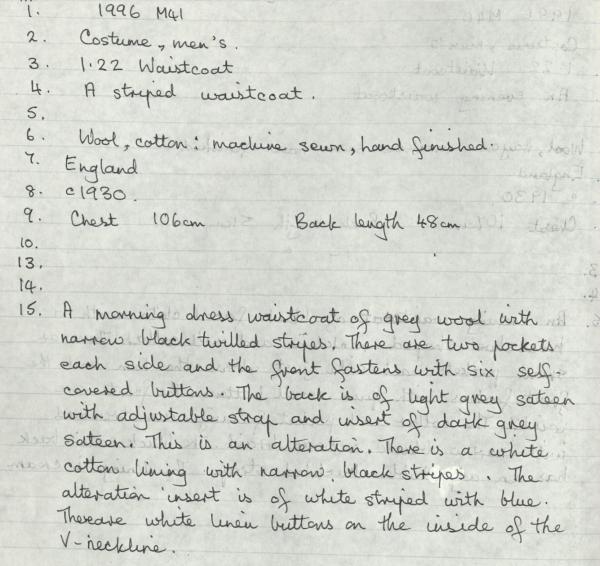 1. 1996 M41
2. Costume, men's.
3. 1.22 Waistcoat
4. A striped waistcoat.
5.
6. Wool, cotton: machine sewn, hand finished.
7. England
8. c1930.
9. Chest 106cm Back length 48cm
10.
13.
14.
15. A morning dress waistcoat of grey wool with
narrow black twilled stripes. There are two pockets
each side and the front fastens with six self-
covered buttons. The back is of light grey sateen
with adjustable strap and insert of dark grey
sateen. This is an alteration. There is a white
cotton lining with narrow black stripes. The
alteration insert is of white striped with blue.
There are white linen buttons on the inside of the
V-neckline.